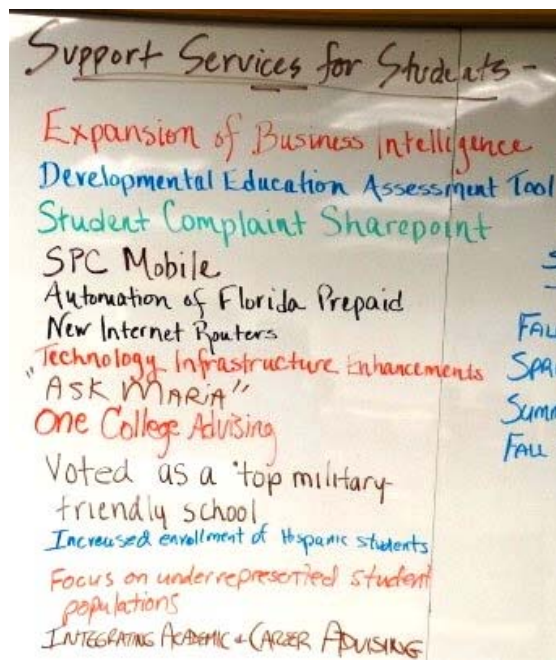 Support Services for Students -
Expansion of Business Intelligence
Developmental Education Assessment Tool
Student Complaint Sharepoint
SPC Mobile
Automation of Florida Prepaid
New Internet Routers
Technology Infrastructure Enhancements
"ASK MARIA"
One College Advising
Voted as a top military-
friendly school
Increased enrollment of Hispanic students
Focus on underrepresented student
populations
INTEGRATING ACADEMIC + CAREER ADVISING
FALL
SPRI
Summ
FALL